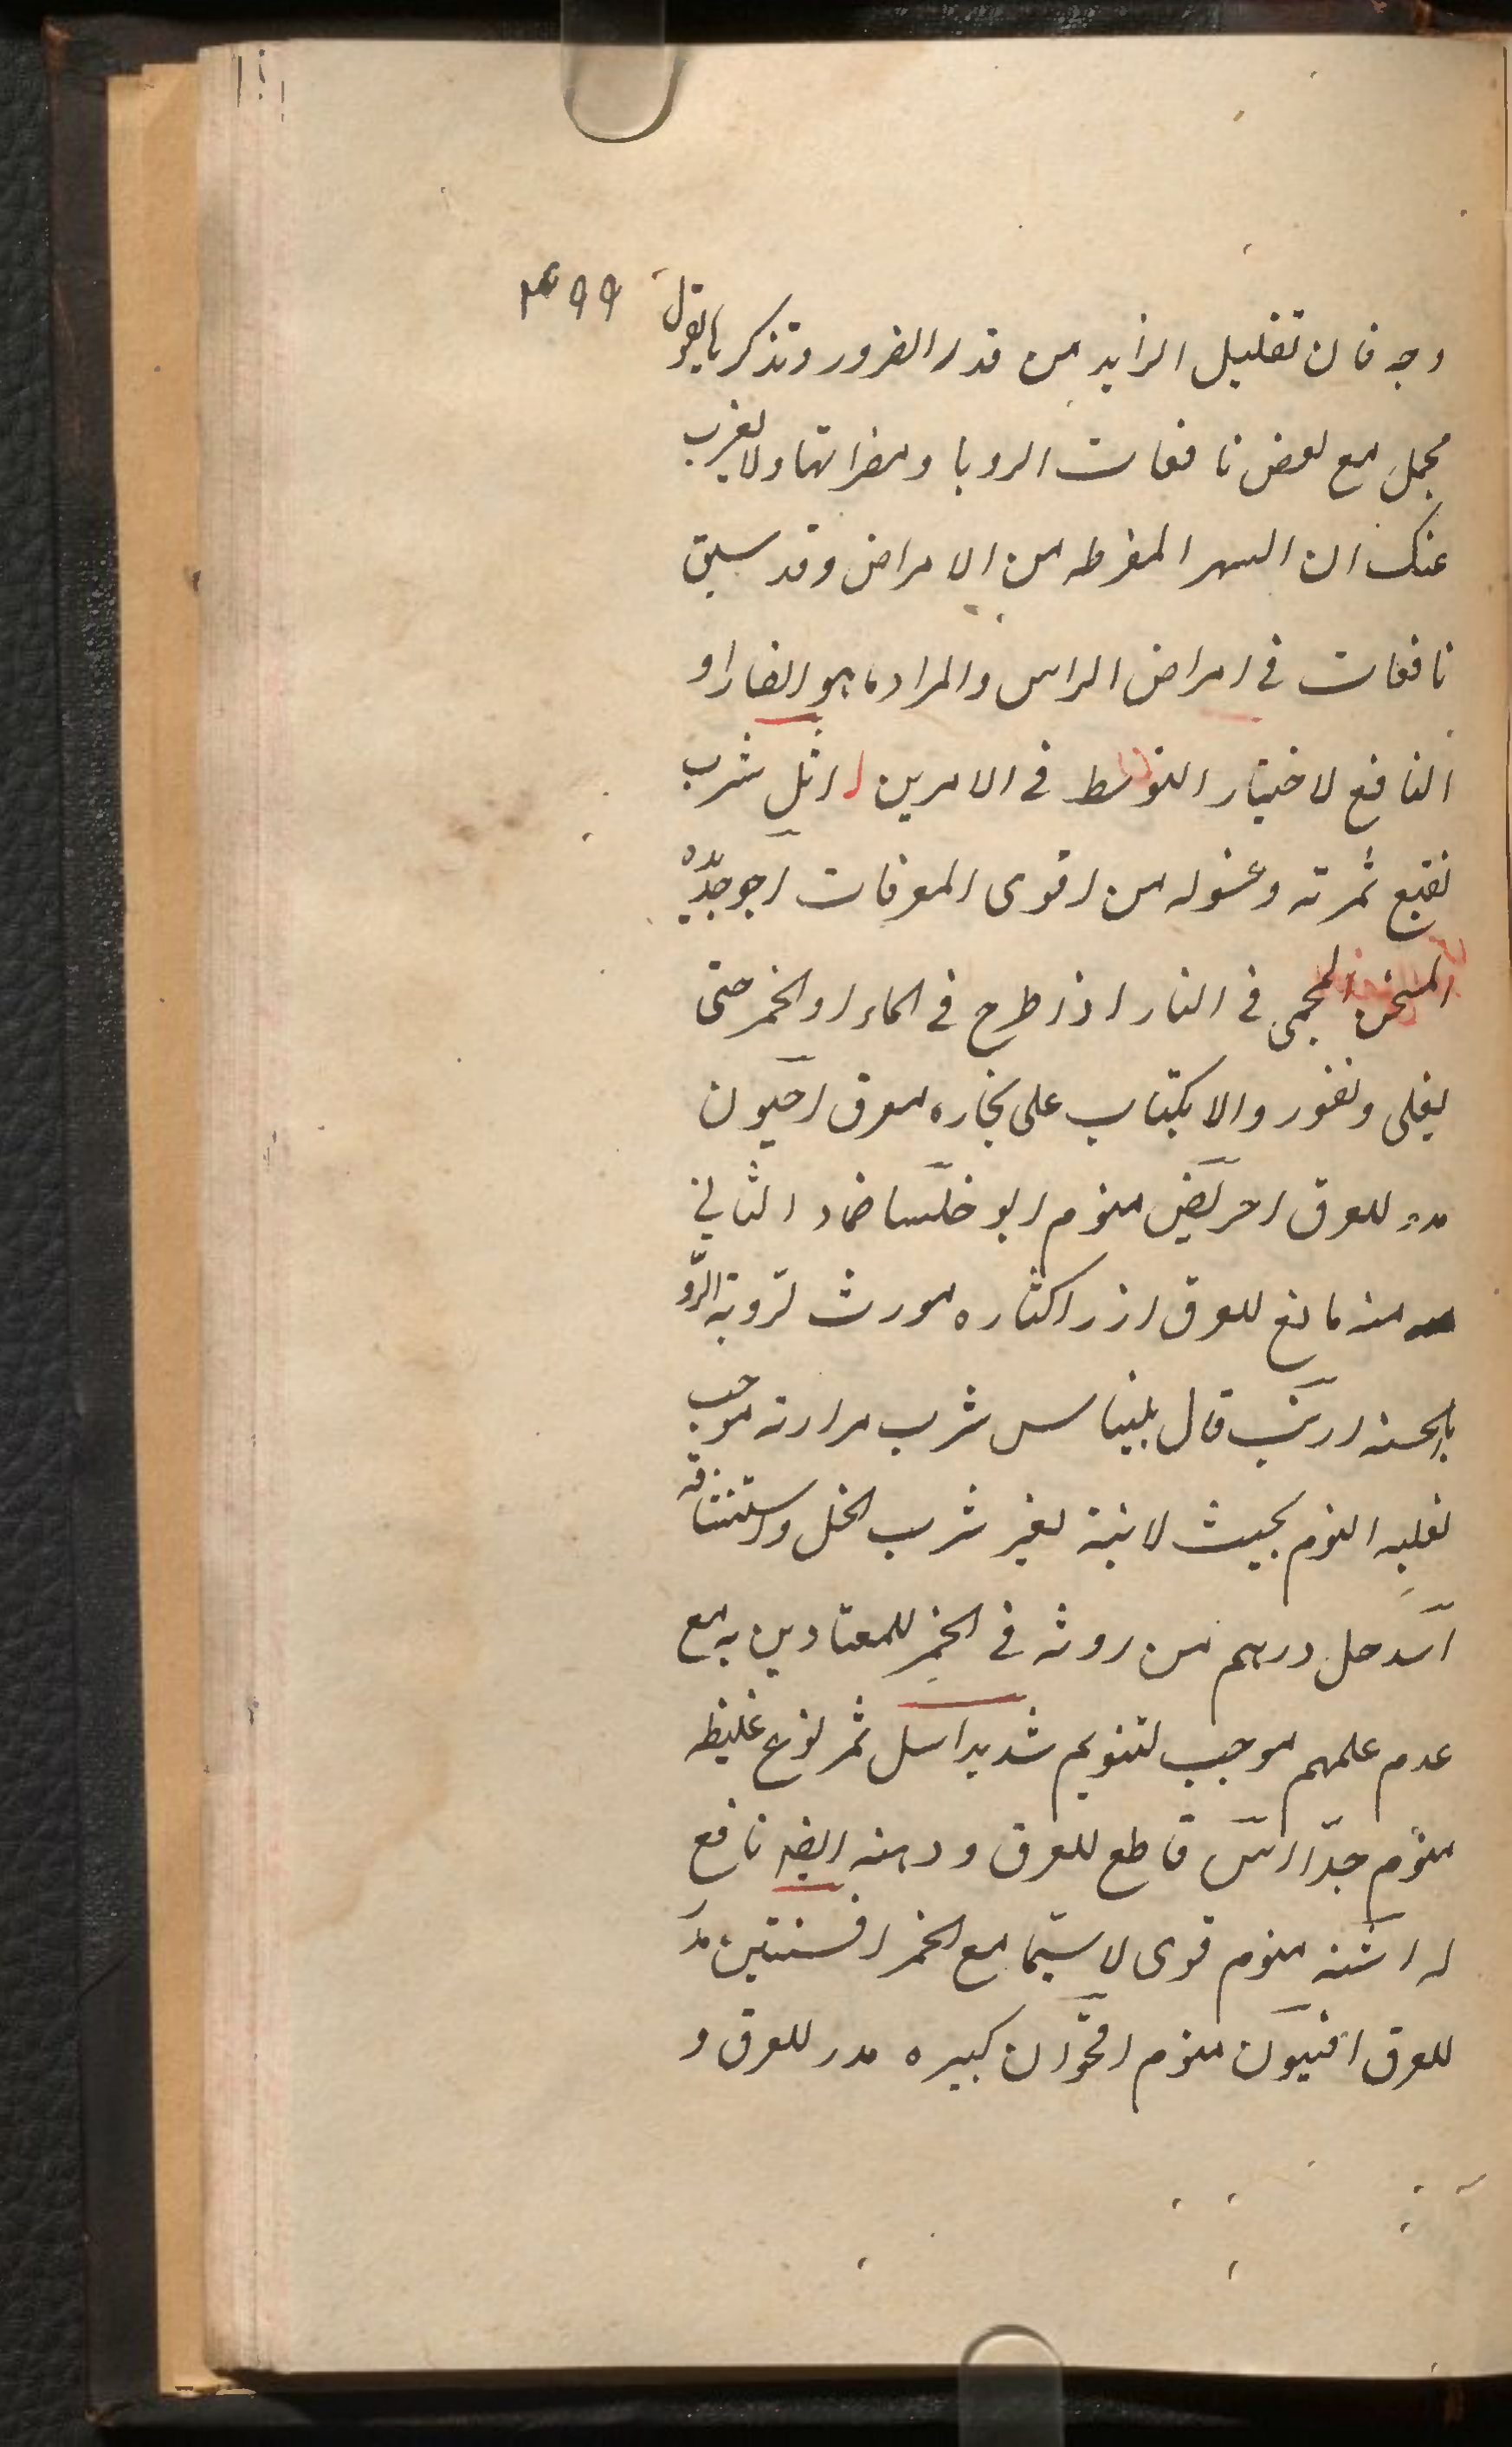 ٤٩٩
وجه فان تقليل الزايد من قدر الضرور وتذكر ما يقول
مجمل مع بعض نافعات الروبا ومضراتها ولا يغرب
عنك ان السهر المفرط من الامراض وقد سبق
نافعات فى امراض الراس والمراد ما هو الضار او
النافع لاختيار التوسط فى الامرين اثل شرب
نقيع ثمرته وغسوله من اقوى المعرقات آجر جديده
المسخن المحمى فى النار اذا طرح فى الماء او الخمر حتى
يغلى ويفور والاكتباب على بخاره معرق اخيون
مدر للعرق احريض منوم ابو خلسا ضماد الثانى
منه مانع للعرق ارز اكثاره مورث لرؤية الرو
بالحسنه ارنب قال بليناس شرب مرارته موجب
لغلبه النوم بحيث لا ينبه بغير شرب الخل واستنشاقه
اسد حل درهم من روثه فى الخمر للمعتادين به مع
عدم علمهم موجب لتنويم شديد اسل ثمر نوع غليظه
منوم جدّا اس قاطع للعرق ودهنه ايضه نافع
له اشنه منوم قوى لا سيّما مع الخمر افسنتين مدر
للعرق افيون منوم اقحوان كبيره مدر للعرق و